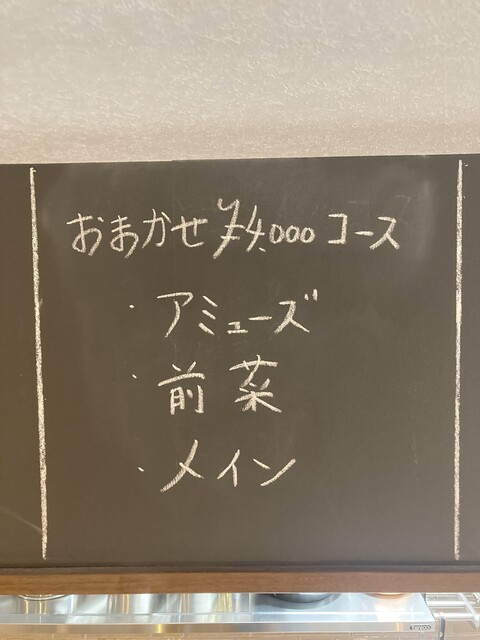 おまかせ ¥4.000 コース
・アミューズ
・前菜
・メイン